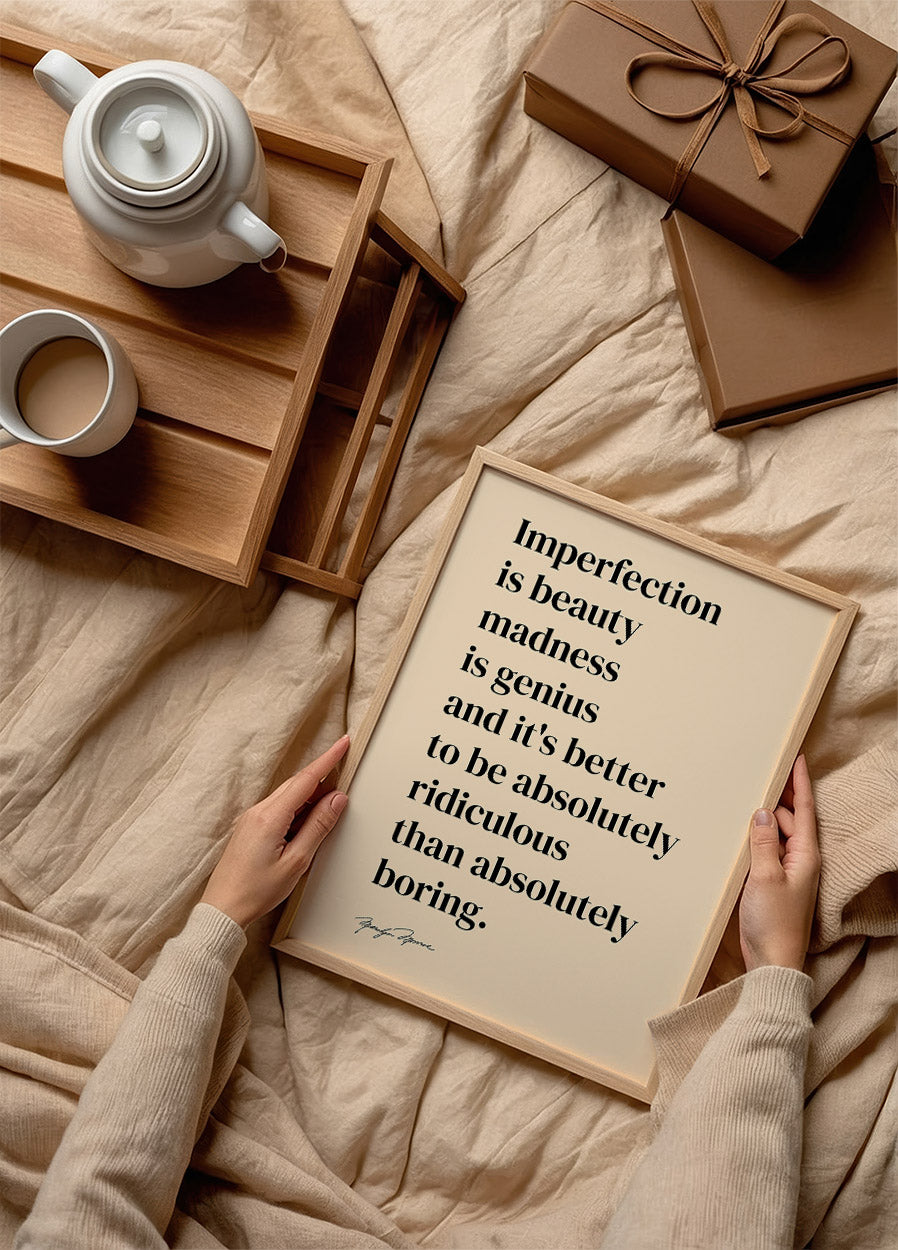 Imperfection
is beauty
madness
is genius
and it's better
to be absolutely
ridiculous
than absolutely
boring.
Marilyn Monroe